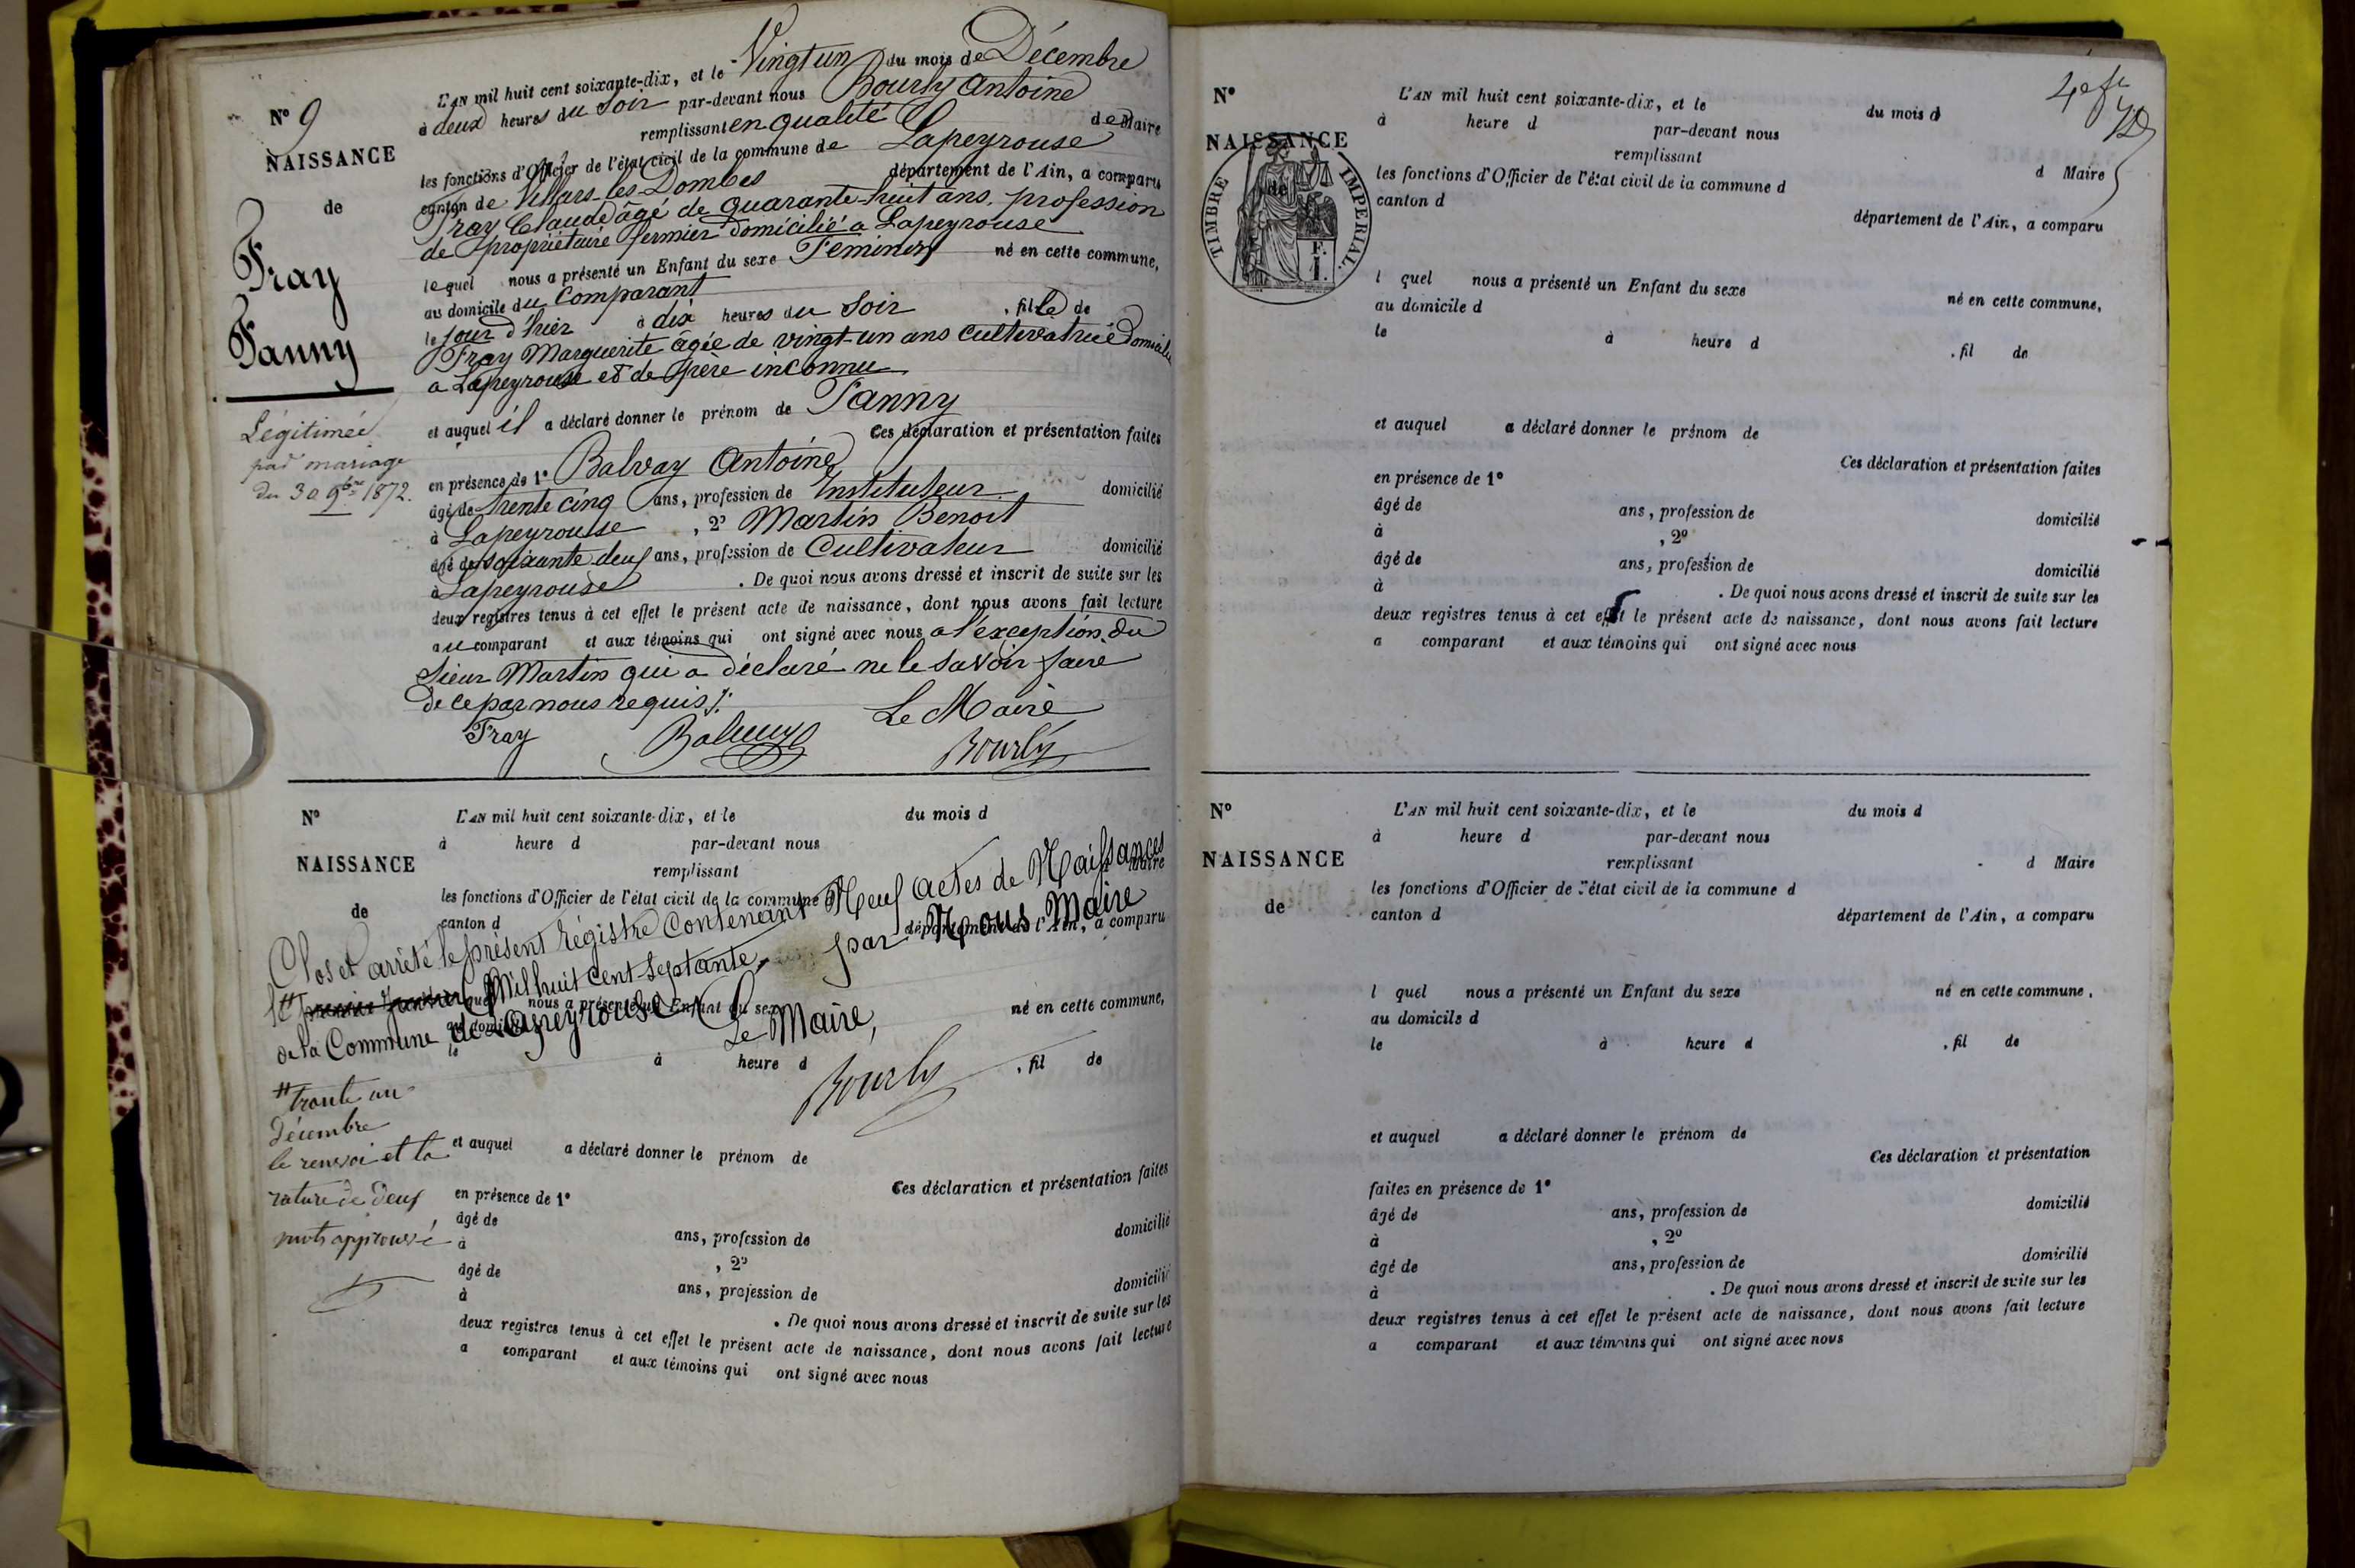 N° 9
NAISSANCE
de
Fray
Fanny
Légitimée
par mariage
du 30 9bre 1872.
L'AN mil huit cent soixante-dix, et le Vingt un du mois de Décembre
à deux heures du Soir par-devant nous Bourly Antoine
remplissant en qualité de Maire
les fonctions d'Officier de l'état civil de la commune de Lapeyrouse
canton de Villars-les-Dombes département de l'Ain, a comparu
Fray Claude âgé de quarante-huit ans, profession
de propriétaire fermier domicilié à Lapeyrouse
lequel nous a présenté un Enfant du sexe Féminin né en cette commune,
au domicile du Comparant
le jour d'hier à dix heures du Soir , fille de
Fray Marguerite âgée de vingt-un ans cultivatrice domiciliée
à Lapeyrouse et de père inconnu
et auquel il a déclaré donner le prénom de Fanny
Ces déclaration et présentation faites
en présence de 1° Balvay Antoine
âgé de trente cinq ans, profession de Instituteur domicilié
à Lapeyrouse , 2° Martin Benoit
âgé de soixante deux ans, profession de Cultivateur domicilié
à Lapeyrouse . De quoi nous avons dressé et inscrit de suite sur les
deux registres tenus à cet effet le présent acte de naissance, dont nous avons fait lecture
au comparant et aux témoins qui ont signé avec nous a l'exception du
Sieur Martin qui a déclaré ne le savoir faire
de ce par nous requis ./.
Le Maire
Fray Balvay Bourly
N°
NAISSANCE
de
L'AN mil huit cent soixante-dix, et le du mois d
à heure d par-devant nous
remplissant Maire
les fonctions d'Officier de l'état civil de la commune d
canton d département de l'Ain, a comparu
Clos et arrêté le présent régistre Contenant Neuf actes de Naissances
le # premier Janvier Mil huit cent septante, par Nous Maire
de la Commune de Lapeyrouse
Le Maire,
Bourly
quel nous a présenté un Enfant du sexe né en cette commune,
au domicile
le à heure d , fil de
# trente un
Décembre
le renvoi et la
rature de deux
mots approuvé
et auquel a déclaré donner le prénom de
Ces déclaration et présentation faites
en présence de 1°
âgé de ans, profession de domicilié
à , 2°
âgé de ans, profession de domicilié
à . De quoi nous avons dressé et inscrit de suite sur les
deux registres tenus à cet effet le présent acte de naissance, dont nous avons fait lecture
a comparant et aux témoins qui ont signé avec nous
N°
NAISSANCE
de
TIMBRE IMPERIAL.
F.
I.
L'AN mil huit cent soixante-dix, et le du mois d
à heure d par-devant nous
remplissant d Maire
les fonctions d'Officier de l'état civil de la commune d
canton d département de l'Ain, a comparu
l quel nous a présenté un Enfant du sexe né en cette commune,
au domicile d
le à heure d , fil de
et auquel a déclaré donner le prénom de
Ces déclaration et présentation faites
en présence de 1°
âgé de ans, profession de domicilié
à , 2°
âgé de ans, profession de domicilié
à . De quoi nous avons dressé et inscrit de suite sur les
deux registres tenus à cet effet le présent acte de naissance, dont nous avons fait lecture
a comparant et aux témoins qui ont signé avec nous
N°
NAISSANCE
de
L'AN mil huit cent soixante-dix, et le du mois d
à heure d par-devant nous
remplissant d Maire
les fonctions d'Officier de l'état civil de la commune d
canton d département de l'Ain, a comparu
l quel nous a présenté un Enfant du sexe né en cette commune,
au domicile d
le à heure d , fil de
et auquel a déclaré donner le prénom de
Ces déclaration et présentation
faites en présence de 1°
âgé de ans, profession de domicilié
à , 2°
âgé de ans, profession de domicilié
à . De quoi nous avons dressé et inscrit de suite sur les
deux registres tenus à cet effet le présent acte de naissance, dont nous avons fait lecture
a comparant et aux témoins qui ont signé avec nous